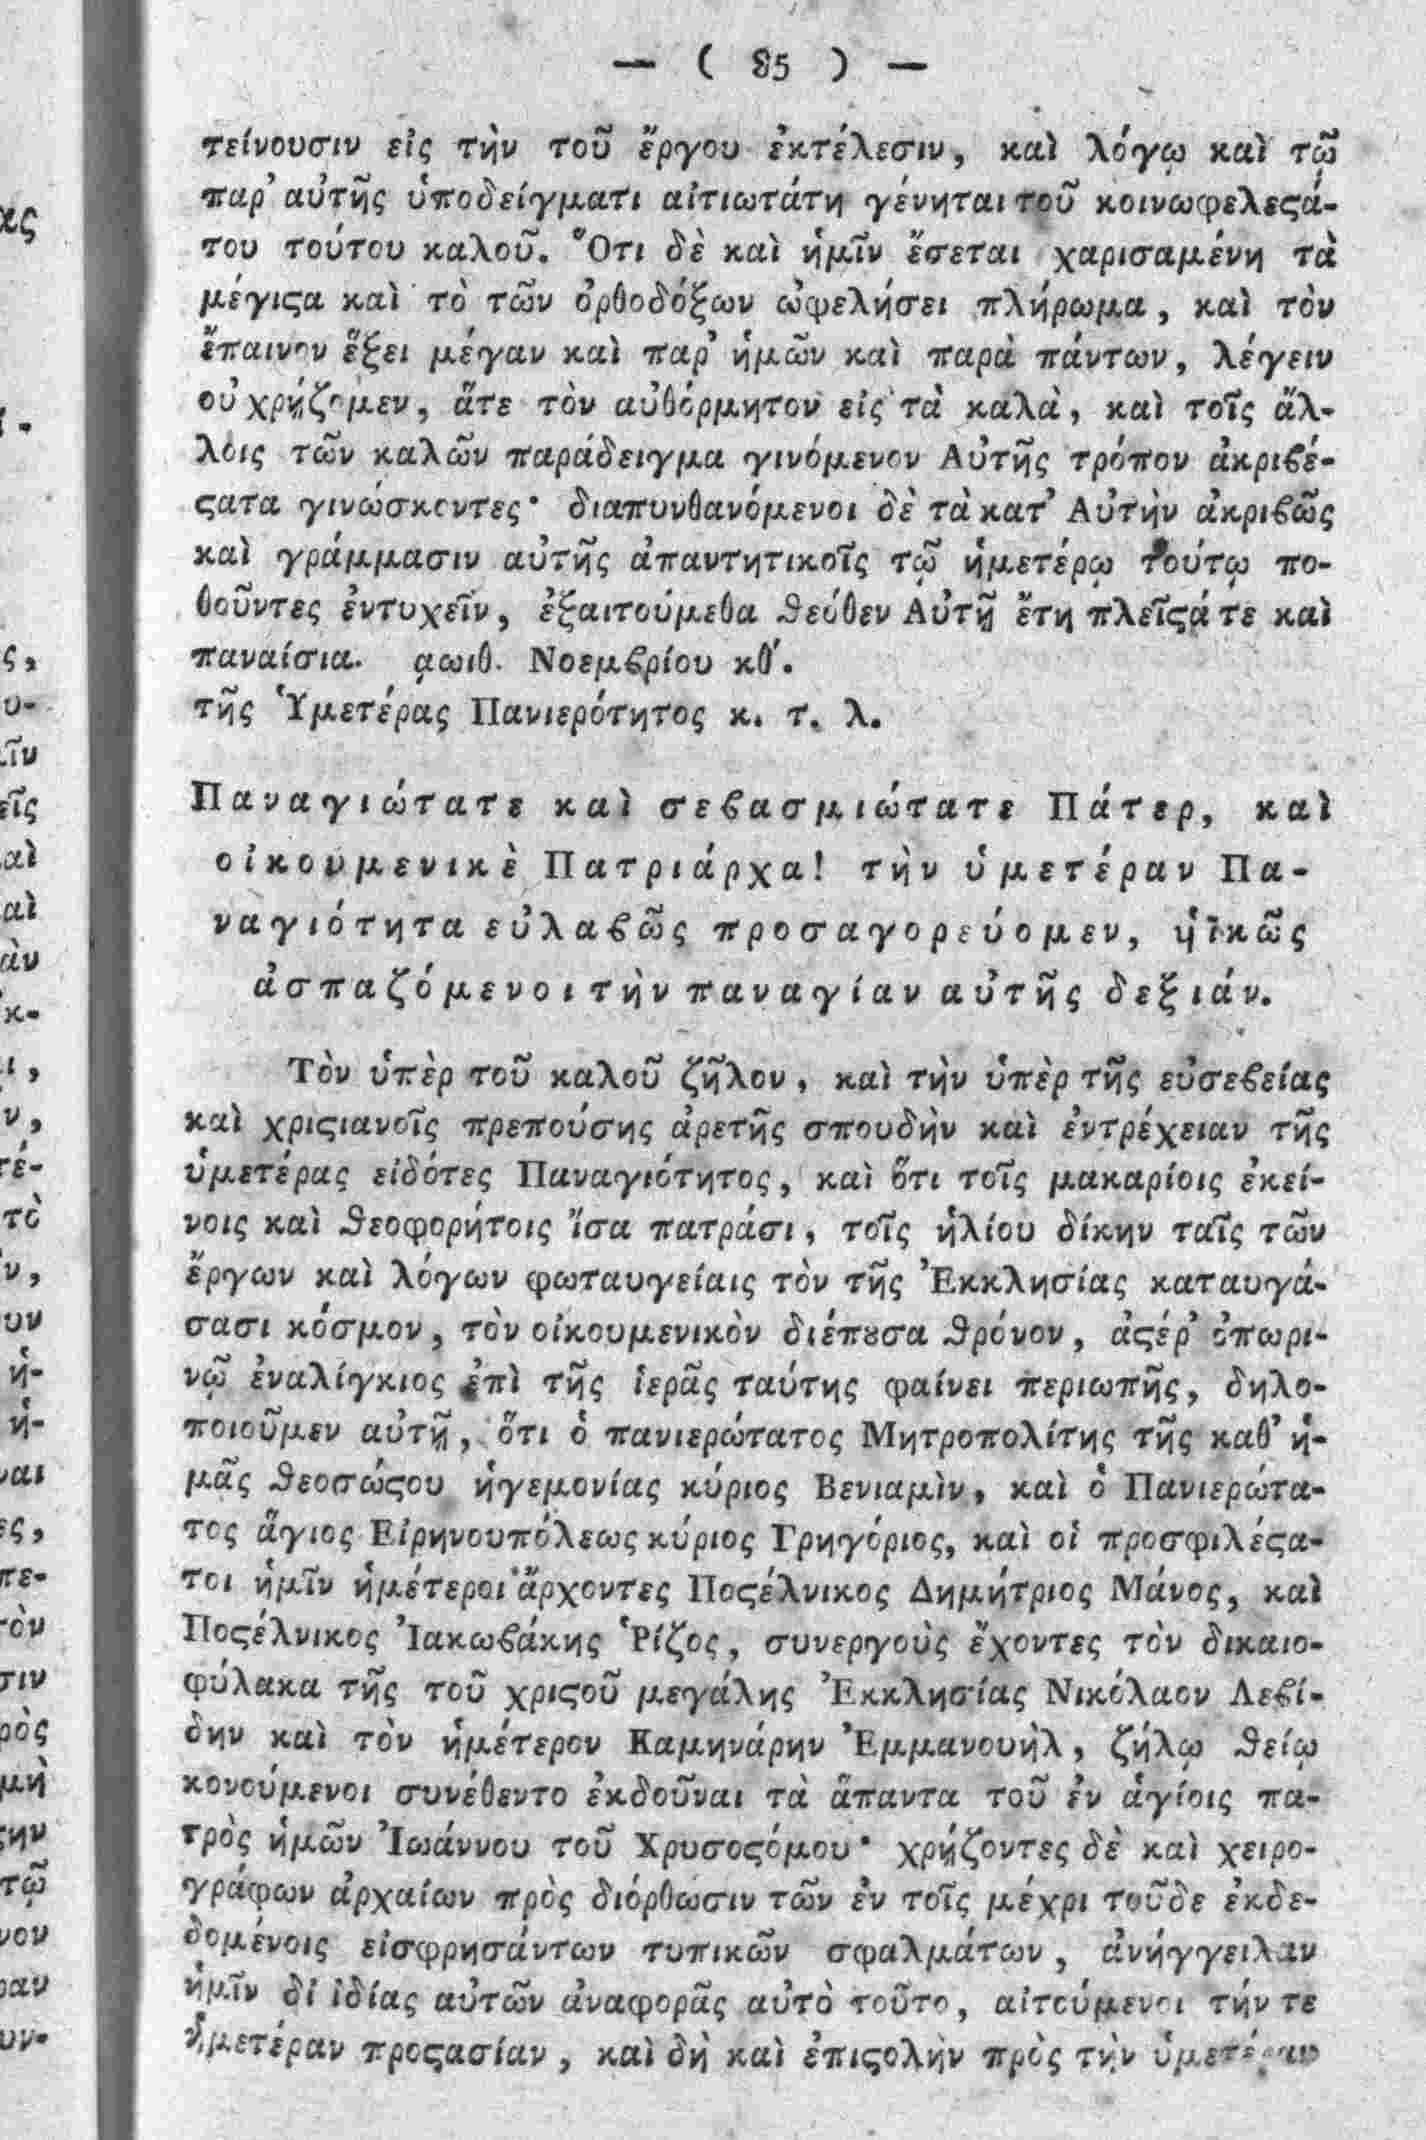 — ( 85 ) —
τείνουσιν εἰς τὴν τοῦ ἔργου ἐκτέλεσιν, καὶ λόγῳ καὶ τῷ
παρ' αὐτῆς ὑποδείγματι αἰτιωτάτη γένηται τοῦ κοινωφελεϛά-
του τούτου καλοῦ. Ὅτι δὲ καὶ ἡμῖν ἔσεται χαρισαμένη τὰ
μέγιϛα καὶ τὸ τῶν ὀρθοδόξων ὠφελήσει πλήρωμα, καὶ τὸν
ἔπαινον ἕξει μέγαν καὶ παρ' ἡμῶν καὶ παρὰ πάντων, λέγειν
οὐ χρῄζομεν, ἅτε τὸν αὐθόρμητον εἰς τὰ καλὰ, καὶ τοῖς ἄλ-
λοις τῶν καλῶν παράδειγμα γινόμενον Αὐτῆς τρόπον ἀκριβέ-
ϛατα γινώσκοντες· διαπυνθανόμενοι δὲ τὰ κατ' Αὐτὴν ἀκριβῶς
καὶ γράμμασιν αὐτῆς ἀπαντητικοῖς τῷ ἡμετέρῳ τούτῳ πο-
θοῦντες ἐντυχεῖν, ἐξαιτούμεθα θεόθεν Αὐτῇ ἔτη πλεῖϛά τε καὶ
παναίσια. ͵αωιθ. Νοεμβρίου κθ'.
τῆς Ὑμετέρας Πανιερότητος κ. τ. λ.
Παναγιώτατε καὶ σεβασμιώτατε Πάτερ, καὶ
οἰκουμενικὲ Πατριάρχα! τὴν ὑμετέραν Πα-
ναγιότητα εὐλαβῶς προσαγορεύομεν, ὑϊκῶς
ἀσπαζόμενοι τὴν παναγίαν αὐτῆς δεξιάν.
Τὸν ὑπὲρ τοῦ καλοῦ ζῆλον, καὶ τὴν ὑπὲρ τῆς εὐσεβείας
καὶ χριϛιανοῖς πρεπούσης ἀρετῆς σπουδὴν καὶ ἐντρέχειαν τῆς
ὑμετέρας εἰδότες Παναγιότητος, καὶ ὅτι τοῖς μακαρίοις ἐκεί-
νοις καὶ θεοφορήτοις ἴσα πατράσι, τοῖς ἡλίου δίκην ταῖς τῶν
ἔργων καὶ λόγων φωταυγείαις τὸν τῆς Ἐκκλησίας καταυγά-
σασι κόσμον, τὸν οἰκουμενικὸν διέπȣσα θρόνον, ἀϛέρ' ὀπωρι-
νῷ ἐναλίγκιος ἐπὶ τῆς ἱερᾶς ταύτης φαίνει περιωπῆς, δηλο-
ποιοῦμεν αὐτῇ, ὅτι ὁ πανιερώτατος Μητροπολίτης τῆς καθ' ἡ-
μᾶς θεοσώϛου ἡγεμονίας κύριος Βενιαμὶν, καὶ ὁ Πανιερώτα-
τος ἅγιος Εἰρηνουπόλεως κύριος Γρηγόριος, καὶ οἱ προσφιλέϛα-
τοι ἡμῖν ἡμέτεροι ἄρχοντες Ποϛέλνικος Δημήτριος Μάνος, καὶ
Ποϛέλνικος Ἰακωβάκης Ῥίζος, συνεργοὺς ἔχοντες τὸν δικαιο-
φύλακα τῆς τοῦ χριϛοῦ μεγάλης Ἐκκλησίας Νικόλαον Λεβί-
δην καὶ τὸν ἡμέτερον Καμηνάρην Ἐμμανουὴλ, ζήλῳ θείῳ
κονούμενοι συνέθεντο ἐκδοῦναι τὰ ἅπαντα τοῦ ἐν ἁγίοις πα-
τρὸς ἡμῶν Ἰωάννου τοῦ Χρυσοϛόμου· χρῄζοντες δὲ καὶ χειρο-
γράφων ἀρχαίων πρὸς διόρθωσιν τῶν ἐν τοῖς μέχρι τοῦδε ἐκδε-
δομένοις εἰσφρησάντων τυπικῶν σφαλμάτων, ἀνήγγειλαν
ἡμῖν δι ἰδίας αὐτῶν ἀναφορᾶς αὐτὸ τοῦτο, αἰτούμενοι τήν τε
ἡμετέραν προϛασίαν, καὶ δὴ καὶ ἐπιϛολὴν πρὸς τὴν ὑμετέραν